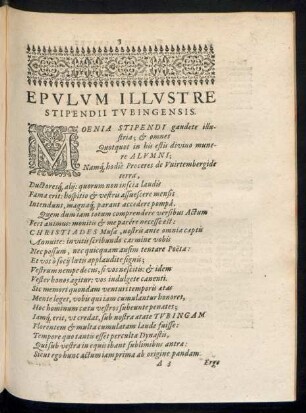 3
EPVLVM ILLVSTRE
STIPENDII TVBINGENSIS.
MOENIA STIPENDI gaudete illu-
stria; & omnes
Quotquot in his estis divino mune-
re ALVMNI;
Namq́, hodiè Proceres de Vvirtembergide
terra,
Ductoresq́, alij: quorum non inscia laudis
Fama erit: hospitio & vestræ assuescere mensæ
Intendunt, magnaq́; parant accedere pompâ.
Quem dum iam totum comprendere versibus Actum
Fert animus: monitu & me parêre necesse est:
CHRISTIADES Musæ, nostris ante omnia cœptis
Annuite: invitis scribundo carmine vobis
Nec possum, nec quicquam ausim tentare Poëta:
Et vos ô socij læti applaudite signis;
Vestrum nempe decus, si vos nescitis: & idem
Vester honos agitur: vos indulgete canenti.
Sic memori quondam venturi temporis ætas
Mente leget, vobis qui iam cumulantur honores,
Hoc hominum cœtu vestros subeunte penates;
Iamq́, erit, ut credat, sub nostra ætate TVBINGAM
Florentem & multa cumulatam laude fuisse:
Tempore quo tantus esset percultæ Dynastis,
Qui sub vestra in equis ibant sublimibus antra:
Sicut ego hunc actum iam prima ab origine pandam.
A 3 Ergo